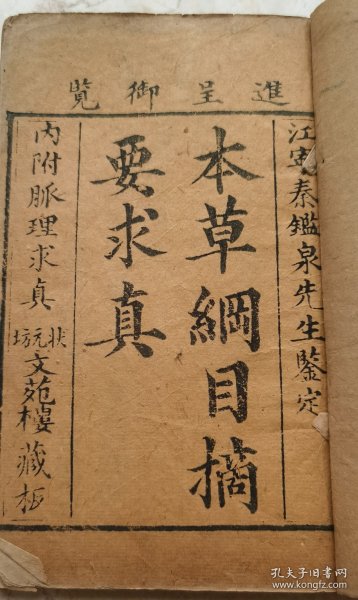 進呈御覧
江寧秦鑑泉先生鑒定
本草綱目摘
要求真
內附脈理求真
狀元坊文苑樓藏板
孔夫子旧书网
www.kongfz.com